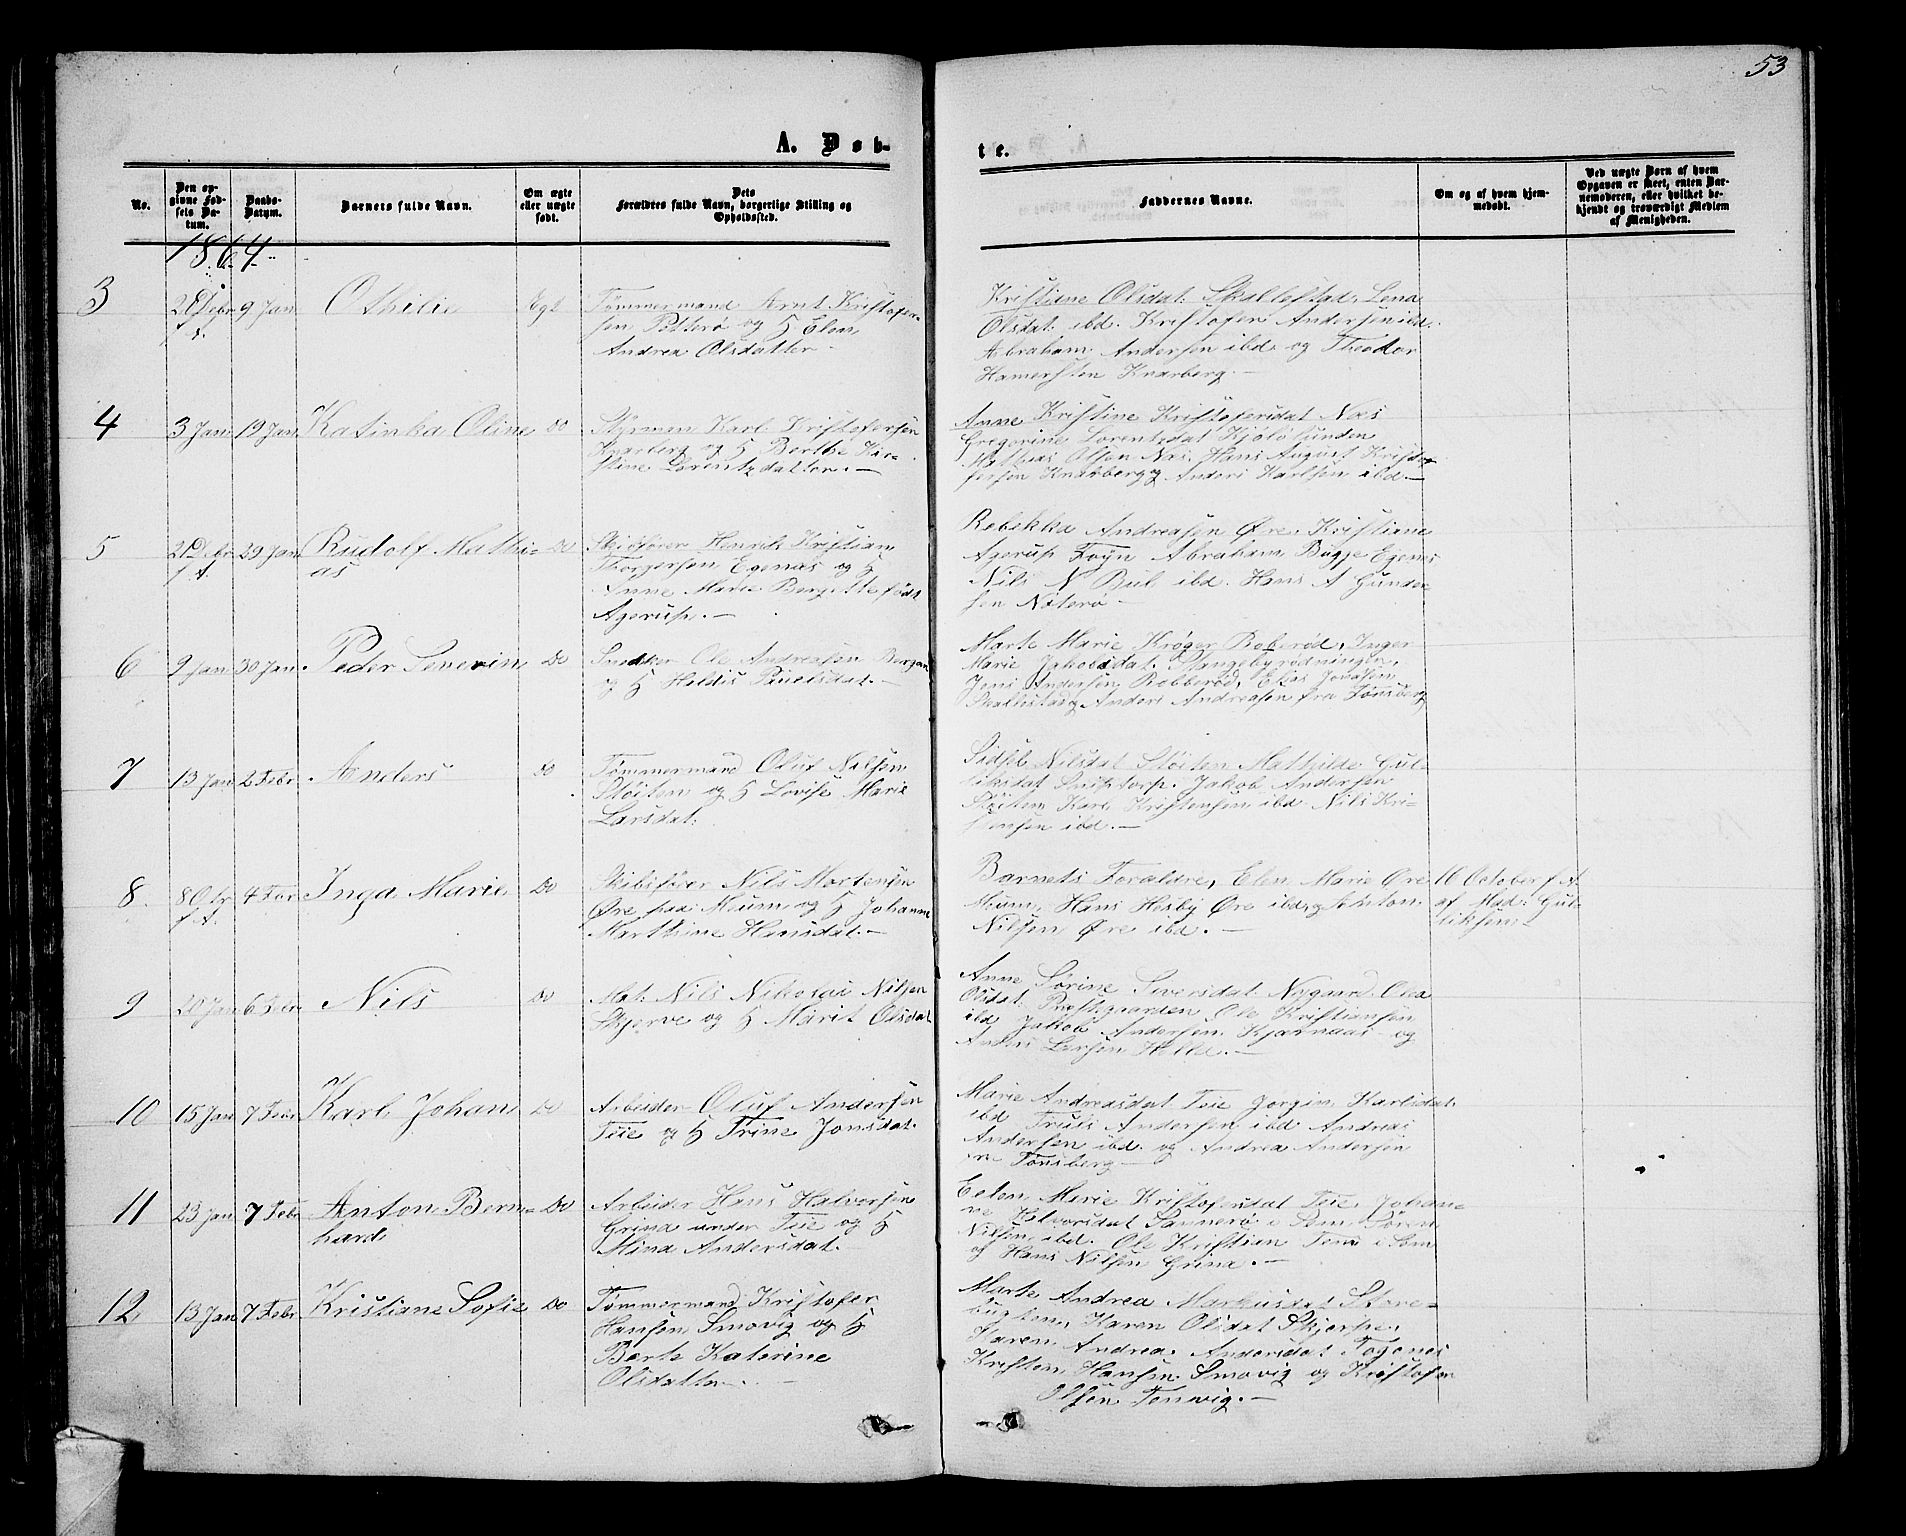 53
A. Døb-
te.
No.
Den op-
givne Fød-
sels Da-
tum.
Daabs-
Datum.
Barnets fulde Navn.
Om ægte
eller uægte
født.
Dets
Forældres fulde Navn, borgerlige Stilling og
Opholdssted.
Faddernes Navne.
Om og af hvem hjem-
medøbt.
Ved uægte Børn af hvem
Opgaven er skeet, enten Bar-
nemoderen, eller hvilket be-
kjendt og troværdigt Medlem
af Menigheden.
1864
3
9 Jan
Othilie
Ægt
Tømmermand Arnt Kristofer-
sen Potterø og H Elen
Andrea Olsdatter
Kristiane Olsdat. Skallestad, Lena
Olsdat. ibd. Kristofer Andersen ibd.
Abraham Andersen ibd. og Theodor
Hamersten Knarberg.
4
3 Jan
19 Jan
Katinka Oline
do
Styrman Karl Kristofersen
Knarberg og H Berthe Kir-
stine Lorentzdatter.
Anne Kristine Kristofersdat Næs
Gregorine Lorentzdat
Mathias Olsen Næs, Hans August Kristo-
fersen Knarberg og Anders Karlsen ibd.
5
29 Jan
Rudolf Mathi-
as
Do
Skibsfører Henrik Kristian
Thorgersen Egenæs og H
Anne Marie Bergitte født
Agerup.
Rebekka Andreasen Øre, Kristiane
Agerup Foyn Abraham Bugge Egenes
Nils N Bul ibd. Hans A Gunder-
sen Nøterø
6
9 Jan
30 Jan
Peder Severin
Do
Snedker Ole Andreasen Bergan
og H Heldis Poulsdat.
Marte Marie Krøger Roberød, Inger
Marie Jakobsdat. Stangebyrødningen,
Jens Andersen Robberød, Elias
Skallestad og Anders Andreasen fra Tønsberg
7
13 Jan
2 Febr
Anders
do
Tømmermand Oluf Nilsen
Støiten og H Lovise Marie
Larsdat.
Sidsel Nilsdat Støiten Mathilde Gul-
liksdat Jakob Andersen
Støiten Karl Kristensen ibd. Nils Kri-
stensen ibd.
8
8 Otr
f. A.
4 Febr
Inga Marie
Do
Skibsfører Nils Mortensen
Øre paa Meum og H Johanne
Marthine Hansdat.
Barnets Forældre, Elen Marie Øre
Meum, Hans Hesby Øre ibd. og Anton
Nilsen Øre ibd.
10 October f. A.
af Mad. Gul-
liksen.
9
20 Jan
6 Febr
Nils
Do
Mat. Nils Nikolai Nilsen
Skjerve og H Marit Olsdat
Anne Sørine Siversdat. Nygaard Olea
Olsdat. Præstegaarden Ole Kristiansen
ibd Jakob Andersen Kjærnaas og
Anders Larsen Hella.
10
15 Jan
7 Febr
Karl Johan
Do
Arbeider Oluf Andersen
Teie og H Trine Jonsdat.
Marie Andreasdat Teie Jørgine Karlsdat.
ibd Truls Andersen ibd Andreas
Andersen ibd. og Andrea Andersen
Tønsberg
11
23 Jan
7 Febr
Anton Bern-
hard
Do
Arbeider Hans Halvorsen
Grina under Teie og H
Mina Andersdat.
Eelen Marie Kristofersdat Teie, Johan-
ne Halvorsdat Sannerø i Sem Søren
Nilsen, ibd. Ole Kristian i Sem
og Hans Nilsen Grina.
12
13 Jan
7 Febr
Kristiane Sofie
Do
Tømmermand Kristofer
Hansen Smovig og H
Berte Katerine
Olsdatter.
Marte Andrea Markusdat
Karen Olsdat Skjerpe,
Karen Andrea Andersdat Togenes
Kristen Hansen Smovig og Kristofer
Olsen Tenvig.